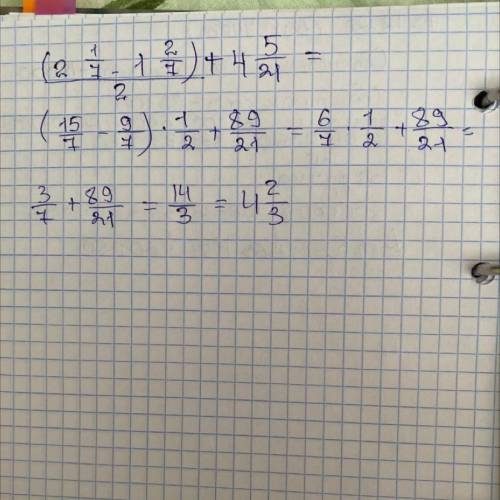 (2 1/7 - 1 2/7)/2 + 4 5/21 =
(15/7 - 9/7) · 1/2 + 89/21 = 6/7 · 1/2 + 89/21 =
3/7 + 89/21 = 14/3 = 4 2/3